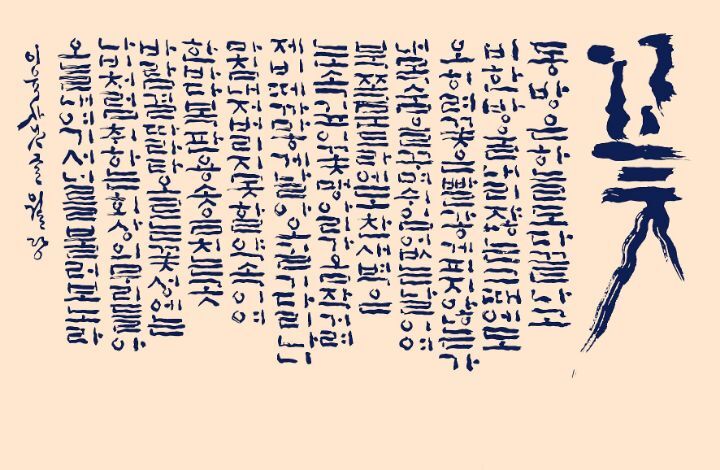 꽃
동방은 하늘도 다 끝나고
비 한 방울 내리잖는 그 땅에도
오히려 꽃은 빨갛게 피지 않는가
내 목숨을 꾸며 쉬임 없는 날이여
북쪽 툰드라에도 찬 새벽은
눈 속 깊이 꽃 맹아리가 옴작거려
제비 떼 까맣게 날아오길 기다리나니
마침내 저버리지 못할 약속이여
한 바다 복판 용솟음치는 곳
바람결 따라 타오르는 꽃 성에는
나비처럼 취하는 회상의 무리들아
오늘 내 여기서 너를 불러 보노라